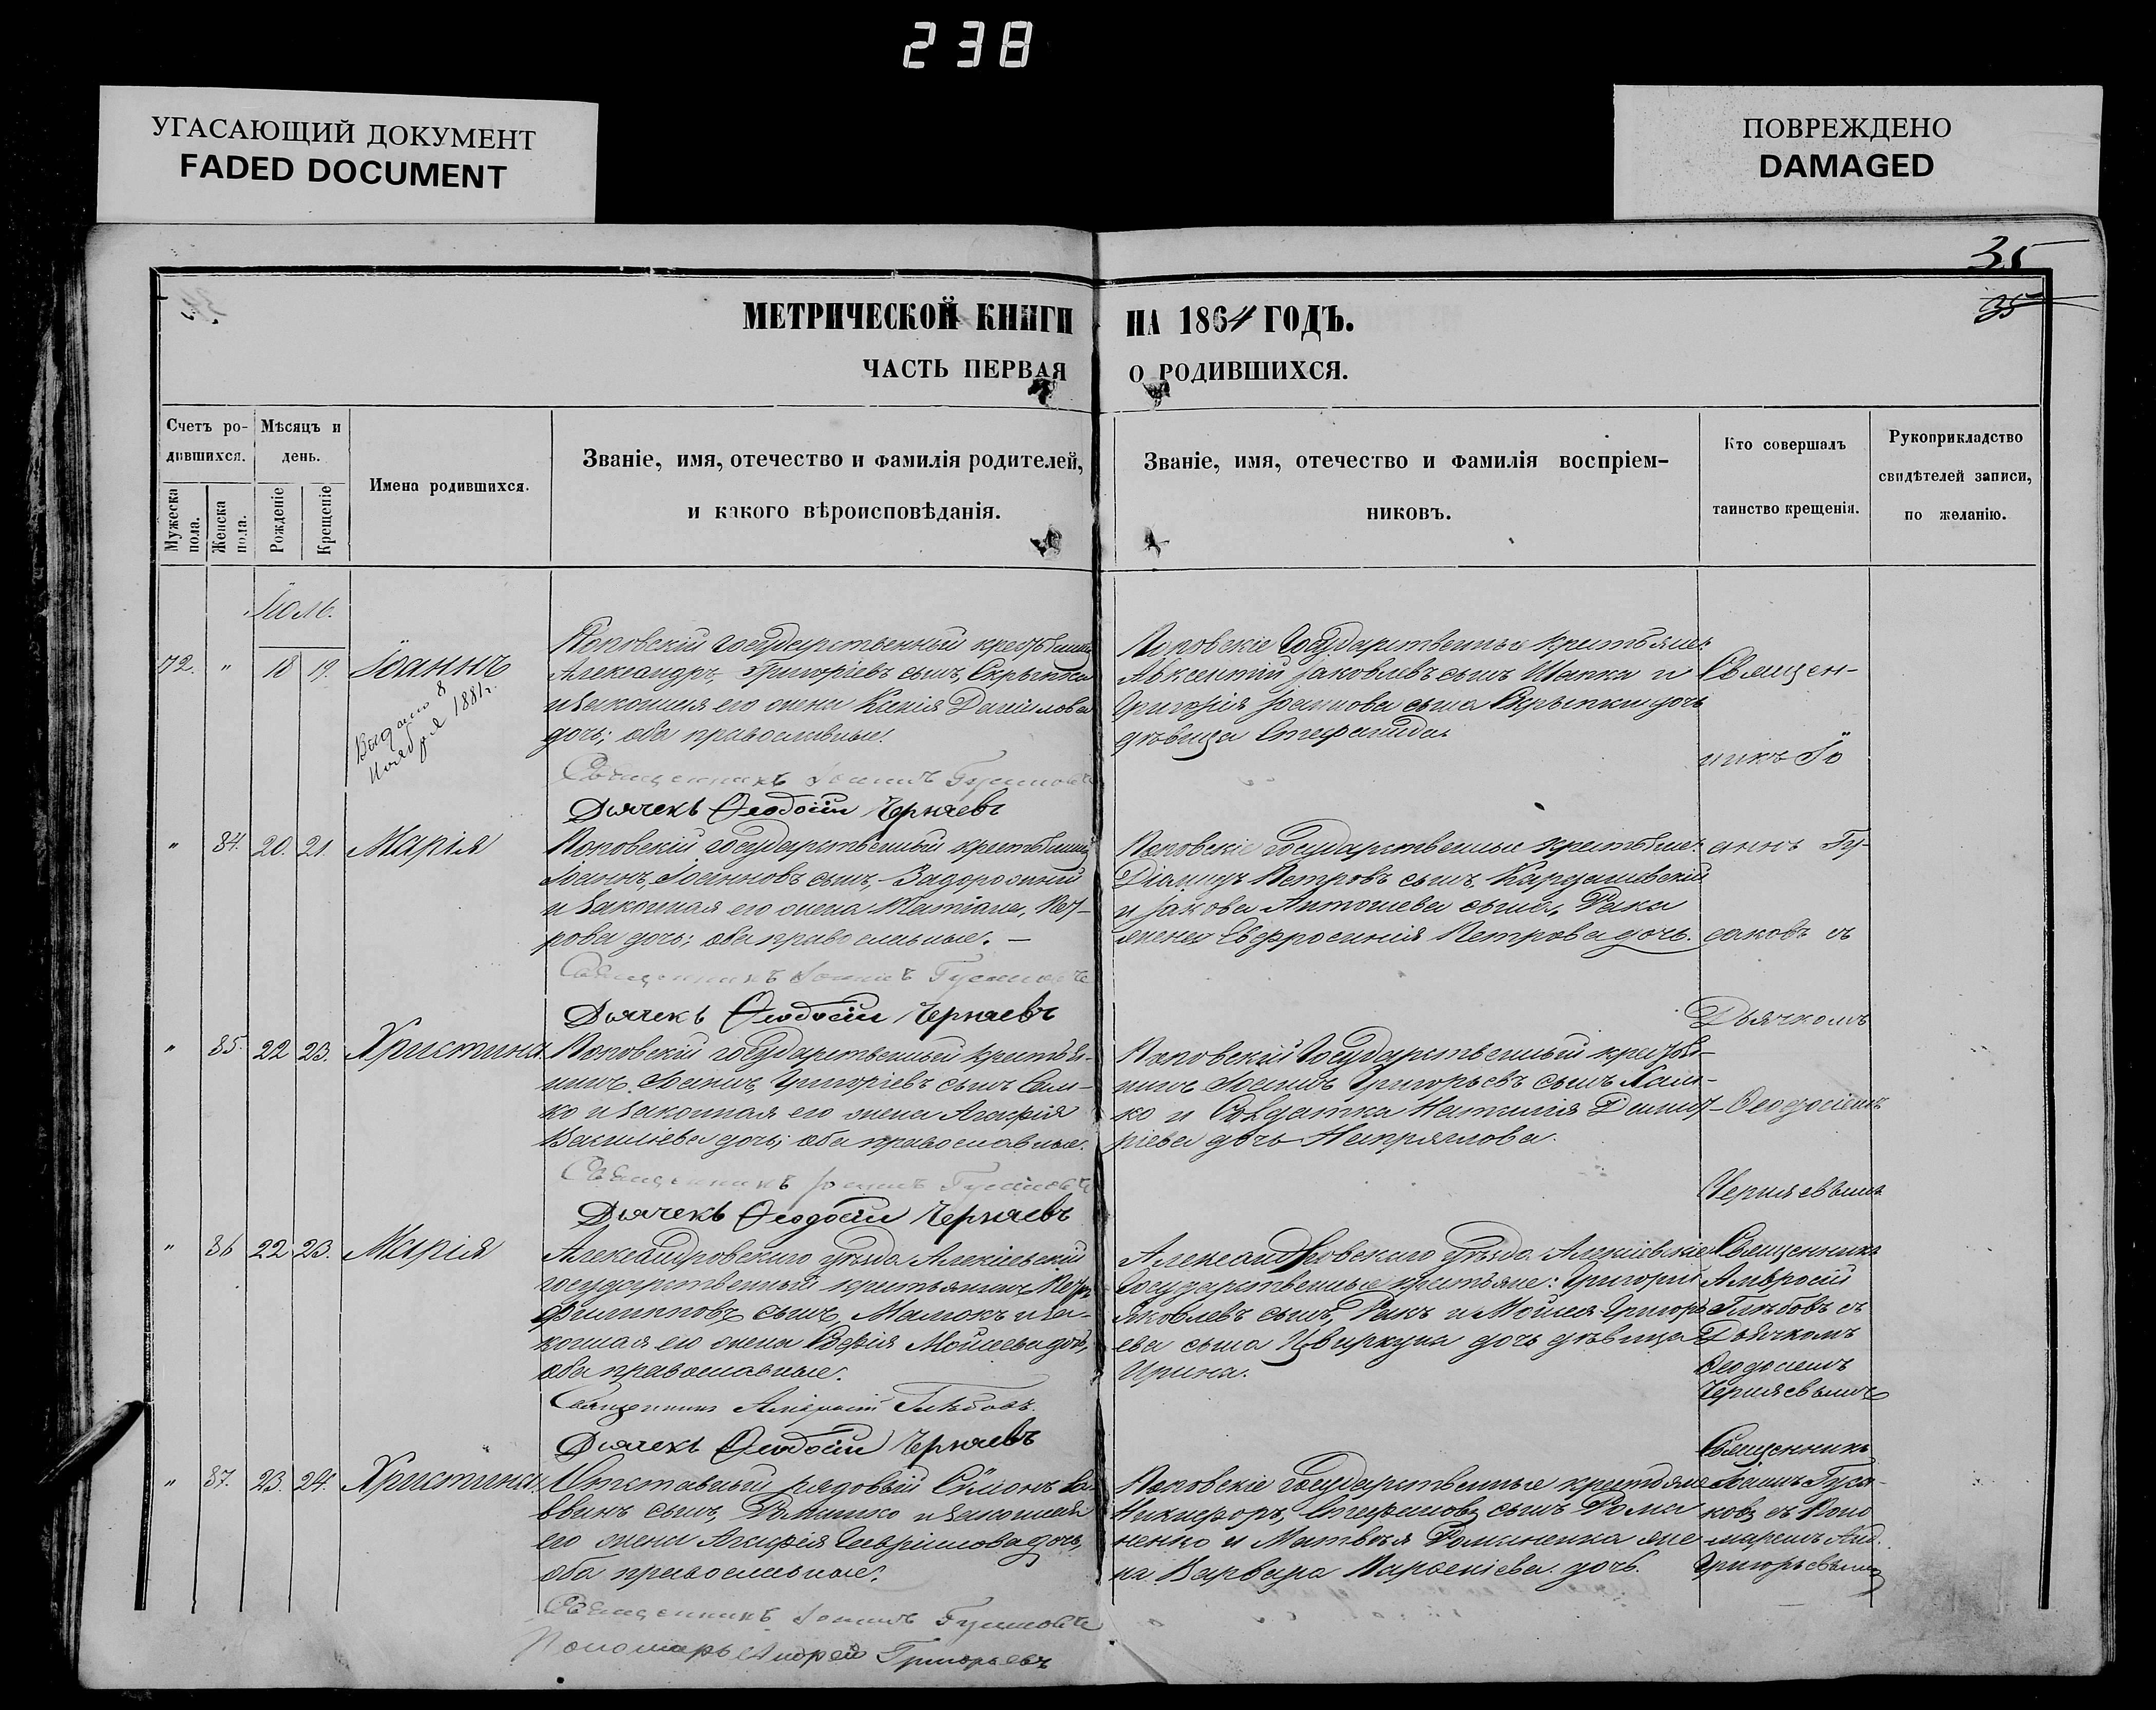 238
УГАСАЮЩИЙ ДОКУМЕНТ
FADED DOCUMENT
ПОВРЕЖДЕНО
DAMAGED
35
35
МЕТРИЧЕСКОЙ КНИГИ НА 1864 ГОДЪ.
ЧАСТЬ ПЕРВАЯ О РОДИВШИХСЯ.
Счетъ ро-
дившихся.
Мужеска пола.
Женска пола.
Мѣсяцъ и
день.
Рожденіе
Крещеніе
Имена родившихся.
Званіе, имя, отечество и фамилія родителей,
и какого вѣроисповѣданія.
Званіе, имя, отечество и фамилія воспріем-
никовъ.
Кто совершалъ
таинство крещенія.
Рукоприкладство
свидѣтелей записи,
по желанію.
Іюль.
72. " 18 19. Іоаннъ
Выдано 8
Ноября 1881 г.
Поповскій государственный
Александръ, Григоріевъ сынъ, Скрыпка
и законная его жена Ксенія Даніилова
дочь; оба православные.
Священникъ Іоаннъ Гусаковъ
Дьячекъ Ѳеодосій Черняевъ
Поповскіе Государственные крестьяне:
Авксентій Яковлевъ сынъ Шапка и
Григорія Іоаннова сына Скрыпки дочь
дѣвица Стефанида.
Священ-
никъ Іо
" 84. 20. 21. Марія
Поповскій государственный
Іоаннъ, Іоанновъ сынъ, Задорожный
и законная его жена Татіана, Пет-
рова дочь; оба православные. —
Священникъ Іоаннъ Гусаковъ
Дьячекъ Ѳеодосій Черняевъ
Поповскіе Государственные крестьяне:
Петровъ сынъ,
и Іакова Антоніева сына, Рака
жена Евфросинія Петрова дочь.
аннъ Гу-
саковъ съ
Дьячкомъ
" 85. 22 23. Христина.
Поповскій государственный крестья-
нинъ, Іоаннъ, Григоріевъ сынъ
и законная его жена Агафія
Василіева дочь; оба православные.
Священникъ Іоаннъ Гусаковъ
Дьячекъ Ѳеодосій Черняевъ
Поповскій Государственный крестья-
нинъ Іоаннъ Григорьевъ сынъ
и Солдатка Наталія Димит-
ріева дочь Напрямова.
Ѳеодосіемъ
Черняевымъ
" 86 22 23. Марія
Александровскаго уѣзда Алексіевскій
государственный крестьянинъ Петръ
Филипповъ сынъ, Малюкъ и за-
конная его жена Мойсеева дочь,
оба православные.
Священникъ Амвросій Глѣбовъ.
Дьячекъ Ѳеодосій Черняевъ
Александровскаго уѣзда Алексіевскіе
Государственные крестьяне: Григорій
Яковлевъ сынъ, Ракъ и Мойсея Григорь
ева сына Цвиркуна дочь дѣвица
Ирина.
Священникъ
Амвросій
Глѣбовъ съ
Дьячкомъ
Ѳеодосіемъ
Черняевымъ
" 87. 23. 24. Христина.
Отставный рядовый Симонъ
сынъ, и законная
его жена Агафія Гавріилова дочь,
оба православные.
Священникъ Іоаннъ Гусаковъ
Пономарь Андрей Григорьевъ
Поповскіе государственные крестьяне
Никифоръ, Стефановъ сынъ Рома
ненко и Матвѣя Романенка же
на Варвара Парѳеніева дочь.
Священникъ
Іоаннъ Гуса-
ковъ съ Поно
маремъ Анд.
Григорьевымъ